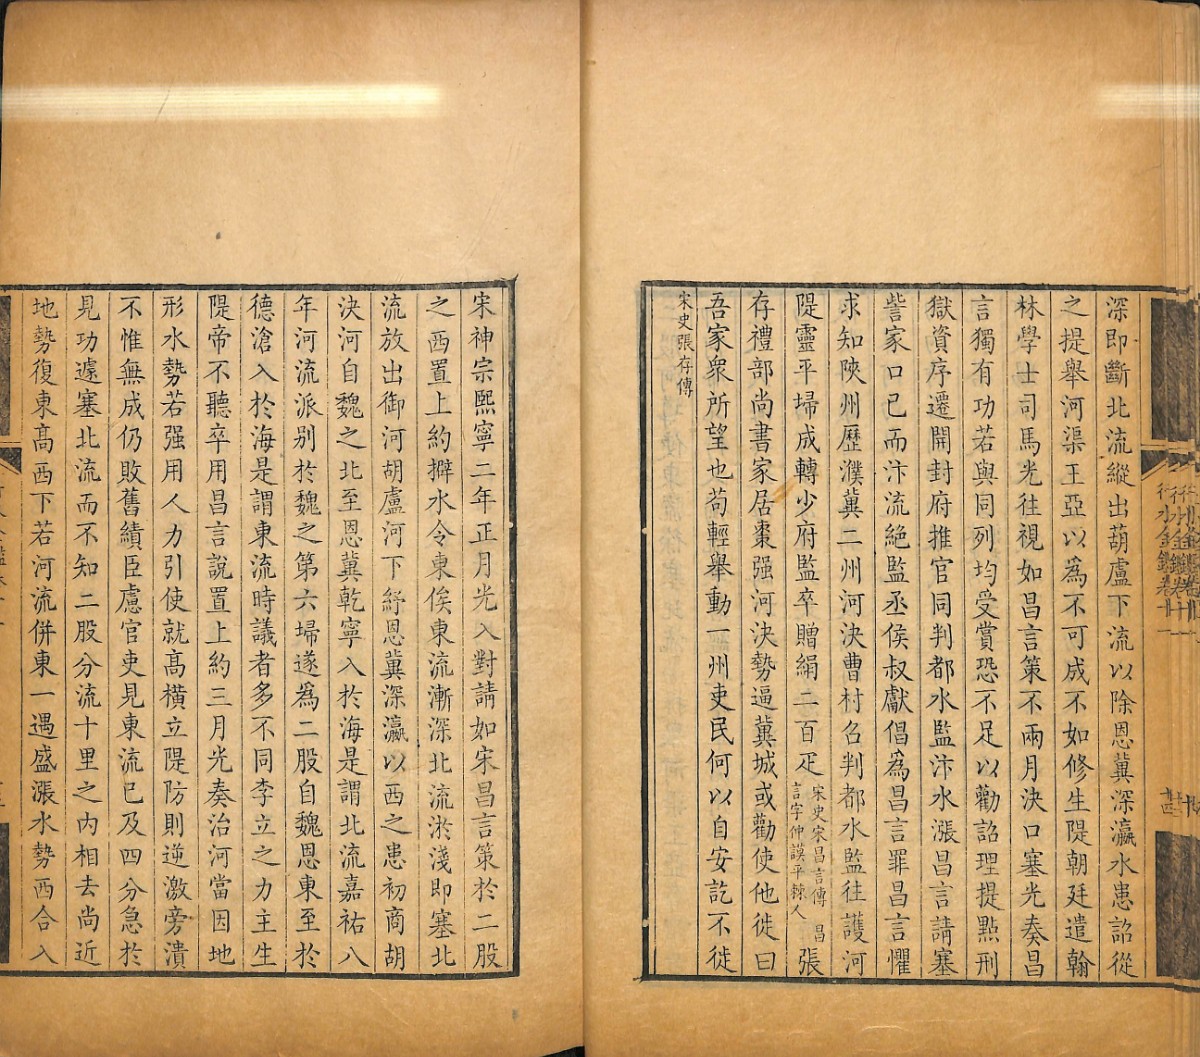 深即斷北流縱出葫盧下流以除恩冀深瀛水患詔從
之提舉河渠王亞以為不可成不如修生隄朝廷遣翰
林學士司馬光往視如昌言策不兩月決口塞光奏昌
言獨有功若與同列均受賞恐不足以勸詔理提㸃刑
獄資序遷開封府推官同判都水監汴水漲昌言請塞
訾家口已而汴流絕監丞侯叔獻倡為昌言罪昌言懼
求知陜州歷濮冀二州河決曹村召判都水監往護河
隄靈平埽成轉少府監卒贈絹二百疋
宋史宋昌言傳 昌
言字仲謨平棘人
張
存禮部尚書家居棗强河決勢逼冀城或勸使他徙曰
吾家衆所望也苟輕舉動一州吏民何以自安訖不徙
宋史張存傳
宋神宗熙寧二年正月光入對請如宋昌言策於二股
之西置上約擗水令東俟東流漸深北流淤淺即塞北
流放出御河胡盧河下紓恩冀深瀛以西之患初商胡
決河自魏之北至恩冀乾寧入於海是謂北流嘉祐八
年河流派别於魏之第六埽遂為二股自魏恩東至於
德滄入於海是謂東流時議者多不同李立之力主生
隄帝不聽卒用昌言說置上約三月光奏治河當因地
形水勢若强用人力引使就髙橫立隄防則逆激旁潰
不惟無成仍敗舊績臣慮官吏見東流已及四分急於
見功遽塞北流而不知二股分流十里之内相去尚近
地勢復東髙西下若河流併東一遇盛漲水勢西合入